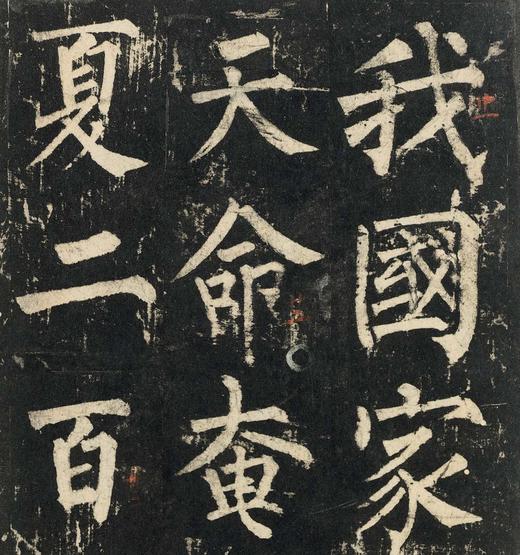 我國家
天命奄
夏二百